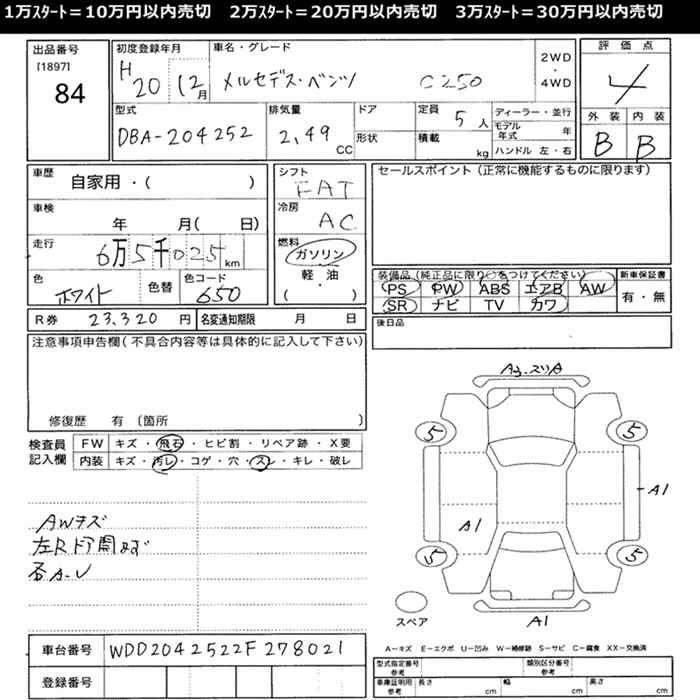 1万ｽﾀｰﾄ＝10万円以内売切　2万ｽﾀｰﾄ＝20万円以内売切　3万ｽﾀｰﾄ＝30万円以内売切
出品番号
[1897]
84
初度登録年月
H 20 12月
車名・グレード
メルセデス・ベンツ C250
2WD
・
4WD
評価点
4
型式
DBA-204252
排気量
2,49 CC
ドア
形状
定員 5 人
積載 kg
ディーラー・並行
モデル年式 年
ハンドル 左・右
外装 内装
B B
車歴
自家用・( )
車検
年 月( 日)
走行
6万5千025km
色
ホワイト
色替
色コード
650
シフト
FAT
冷房
AC
燃料
ガソリン
軽・油
( )
セールスポイント（正常に機能するものに限ります）
装備品（純正品に限り○をつけてください）
PS PW ABS エアB AW
SR ナビ TV カワ
新車保証書
有・無
後日品
R券 23,320 円
名変通知期限 月 日
注意事項申告欄(不具合内容等は具体的に記入して下さい)
修復歴 有〔箇所 〕
検査員記入欄
FW キズ・飛石・ヒビ割・リペア跡・X要
内装 キズ・汚レ・コゲ・穴・スレ・キレ・破レ
AWキズ
左Rドア開
A-U
5 5
A1
A1
5 5
スペア
A1
A－キズ E－エクボ U－凹み W－補修跡 S－サビ C－腐食 XX－交換済
車台番号
WDD2042522F278021
登録番号
型式指定番号参考
類別区分番号参考
車庫証明用参考
長さ cm
幅 cm
高さ cm